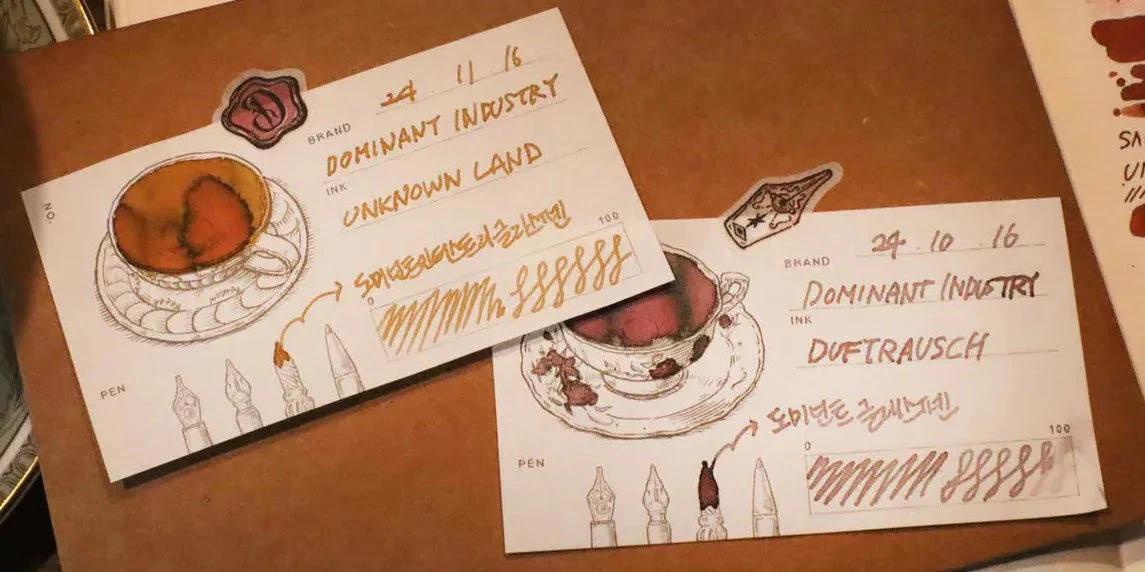 NO.
24 11 16
BRAND
DOMINANT INDUSTRY
INK
UNKNOWN LAND
도미넌트인더스트리 글라스펜
0
100
PEN
24 . 10 . 16
BRAND
DOMINANT INDUSTRY
INK
DUFTRAUSCH
도미넌트 글라스펜
0
100
PEN
SA
U